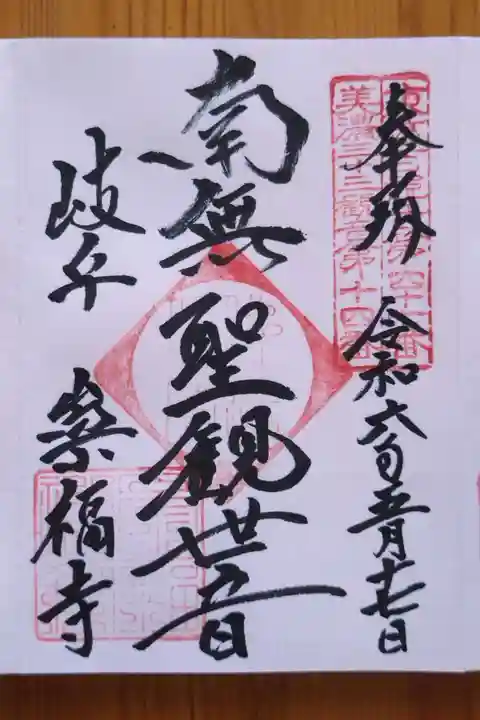 奉拝 令和六年五月
美濃三十三観音第十四番
南無聖観世音
岐阜 崇福寺